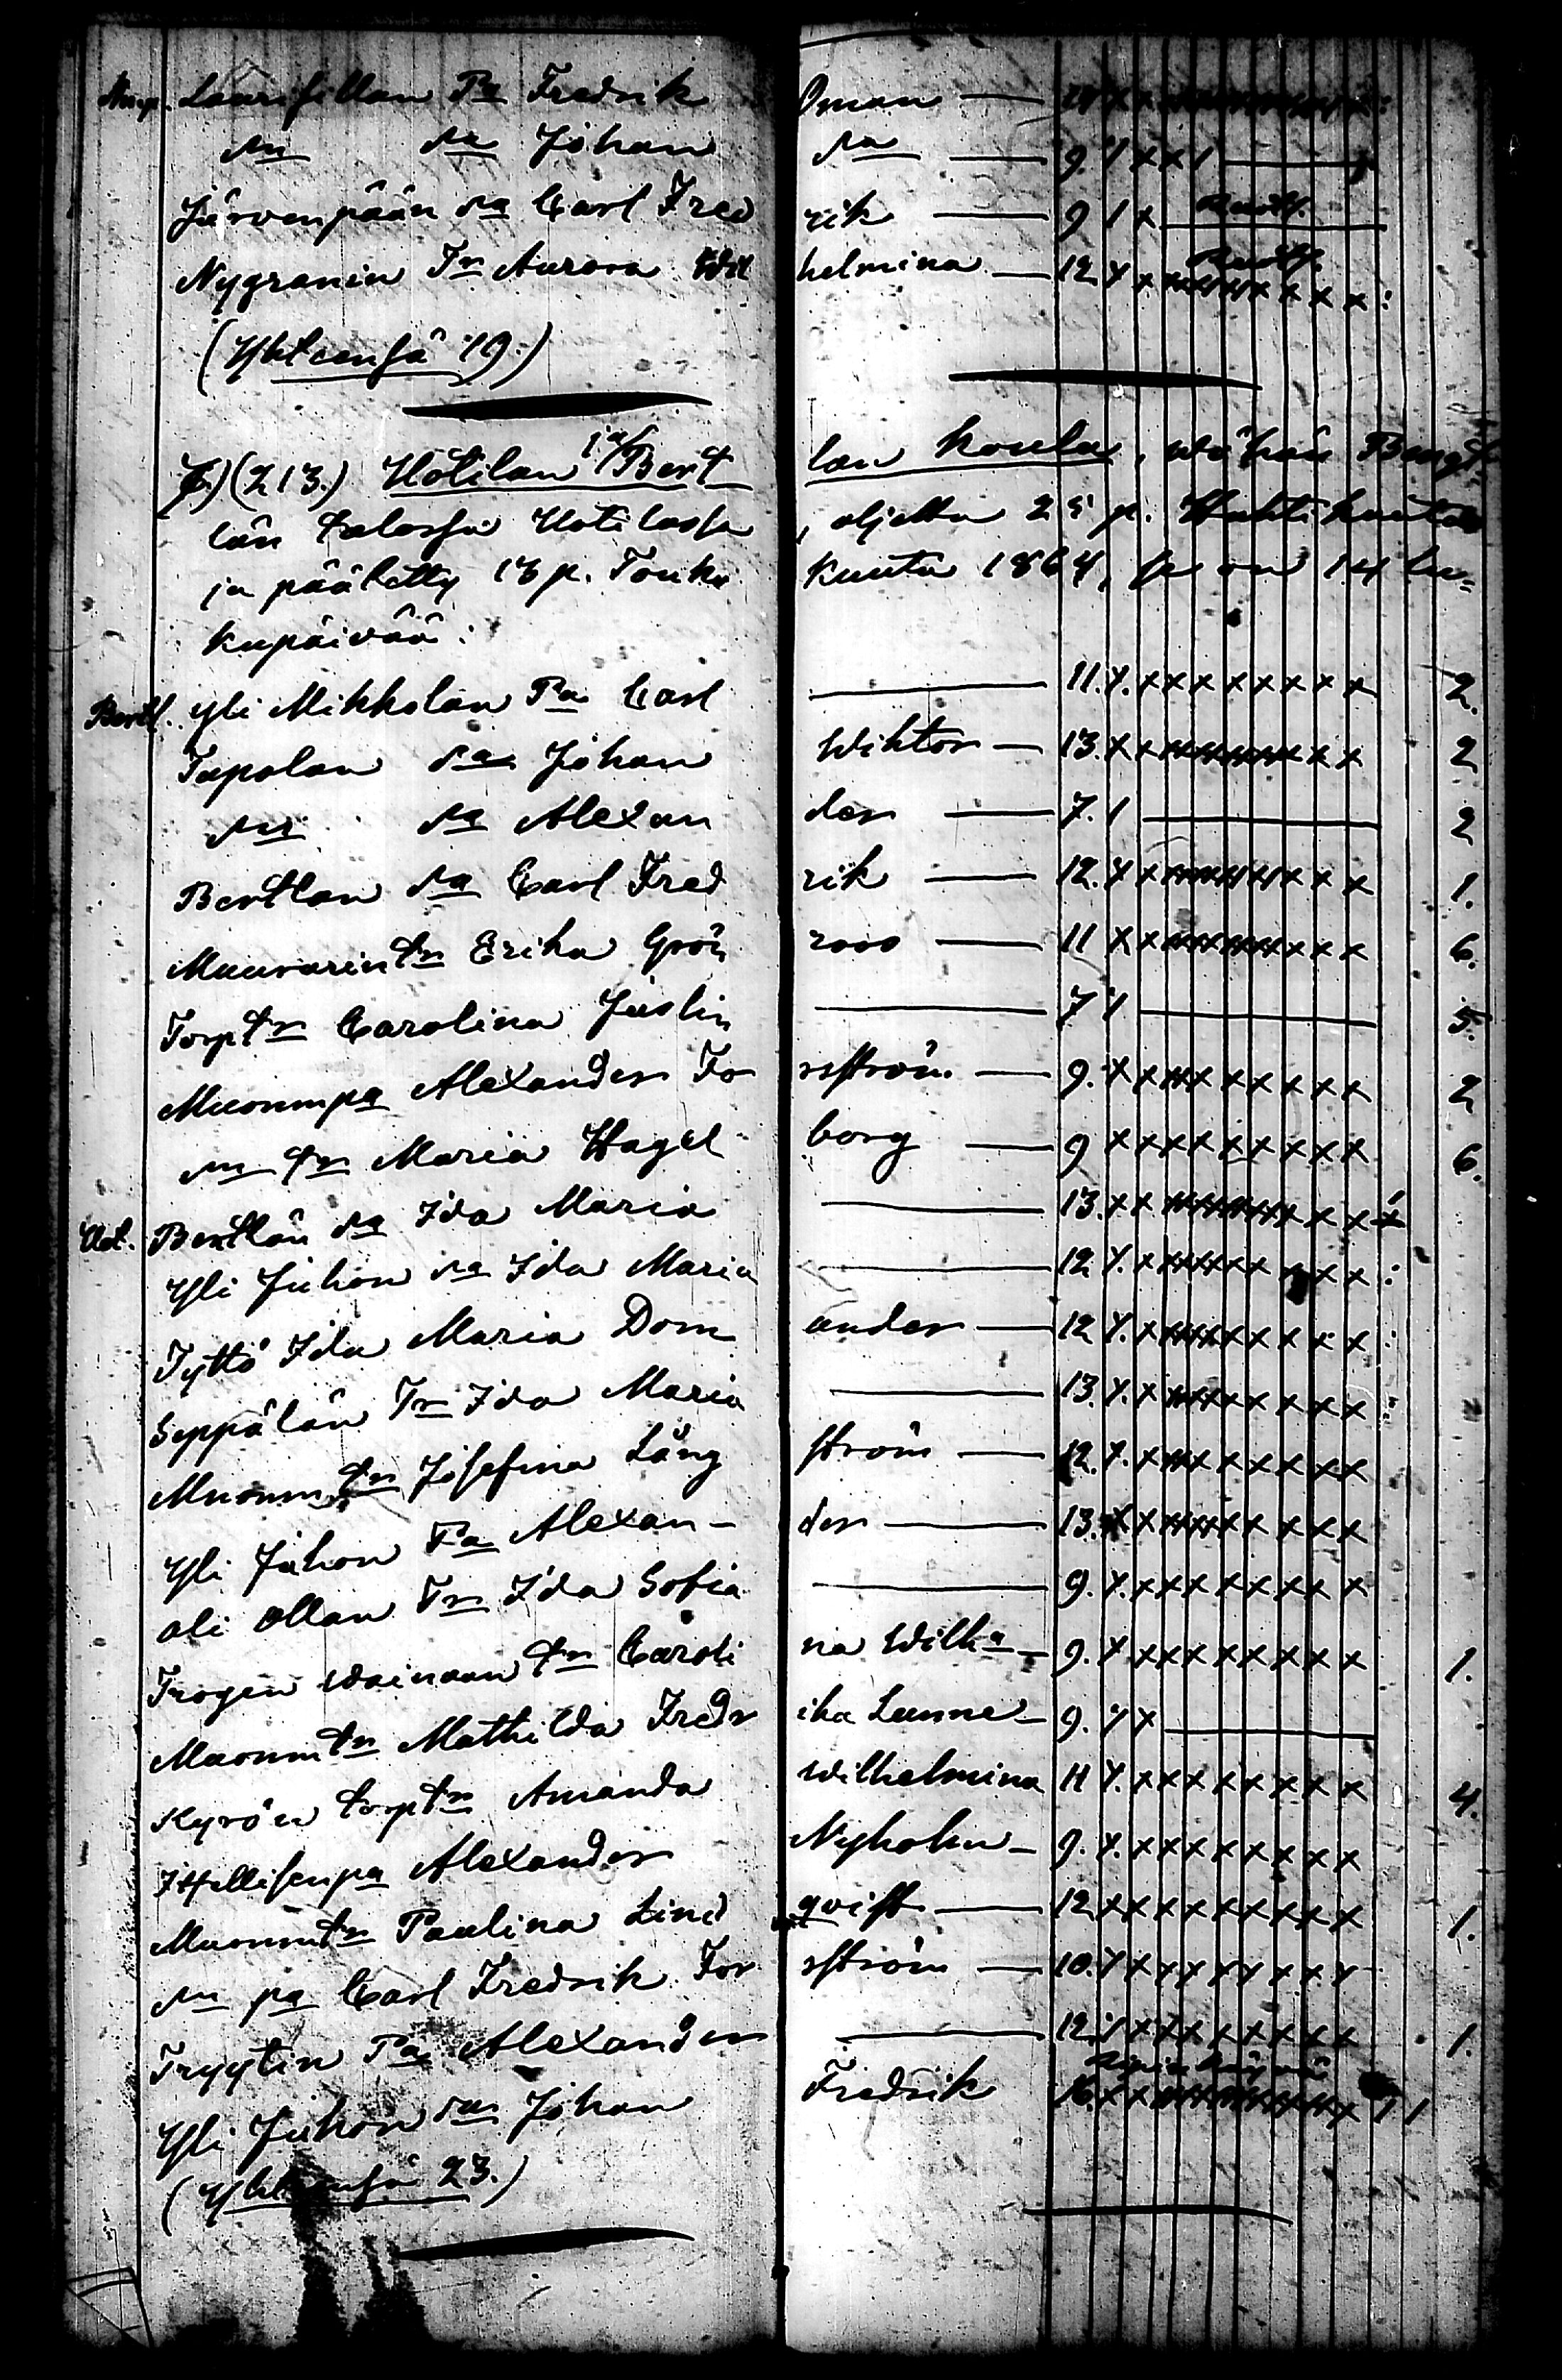 Laurifillan Pa Fredrik Öman — 14 x x x x x x x x x x :
dn da Johan da — 9. / x x / —
Järvenpään da Carl Fred rik — 9 / x —
Nygrenin Tr Aurora Wil helmina — 12 x x x x x x x x x :
(Yhteensä 19.)
7.) (213.) Uotilan ja Bert lan koulu,
län talossa Uotilassa, aljettu 25 p. Huhti kuuta
ja päätetty 18 p. Touko kuuta 1864, se on 14 lu=
kupäivää:
Bertl. Yli Mikkolan Pa Carl — 11. x. x x x x x x x x 2.
Tapolan da Johan Wiktor — 13. x x x x x x x x x 2
dn da Alexan der — 7. / — 2
Bertlan da Carl Fred rik — 12. x x x x x x x x x 1.
Muurarin tr Erika Grön roos — 11 x x x x x x x x x 6.
Torp tr Carolina Juslin — 7 / — 5.
Muonm pa Alexander Fo rsström — 9. x x x x x x x x x 2
dn tr Maria Hagel borg — 9 x x x x x x x x x 6.
Uot. Bertlän da Ida Maria — 13. x x x x x x x x x x
Yli Juhon da Ida Maria — 12 x. x x x x x x x x :
Tyttö Ida Maria Dom ander — 12 x. x x x x x x x x :
Seppälän Tr Ida Maria — 13. x. x x x x x x x x :
Muonm tr Josefina Lång ström — 12. x. x x x x x x x x
Yli Juhon Pa Alexan- der — 13. x x x x x x x x x
Ali Ollan Tr Ida Sofia — 9. x. x x x x x x x x
Trogen wainaan tr Caroli na Wilha — 9. x x x x x x x x x 1.
Muonm tr Mathilda Fredr ika Lunne — 9. x x —
Kyrön torp tr Amanda Wilhelmina 11 x. x x x x x x x x 4.
Itellisen pa Alexander Nyholm — 9. x. x x x x x x x x
Muonm tr Paulina Lind qvist — 12 x x x x x x x x x 1.
dn pa Carl Fredrik For sström — 10. x x x x x x x x x
Tryytin Pa Alexander — 12 / x x x x x x x x 1.
Yli Juhon da Johan Fredrik 16. x x x x x x x x x / /
(Yhteensä 23.)